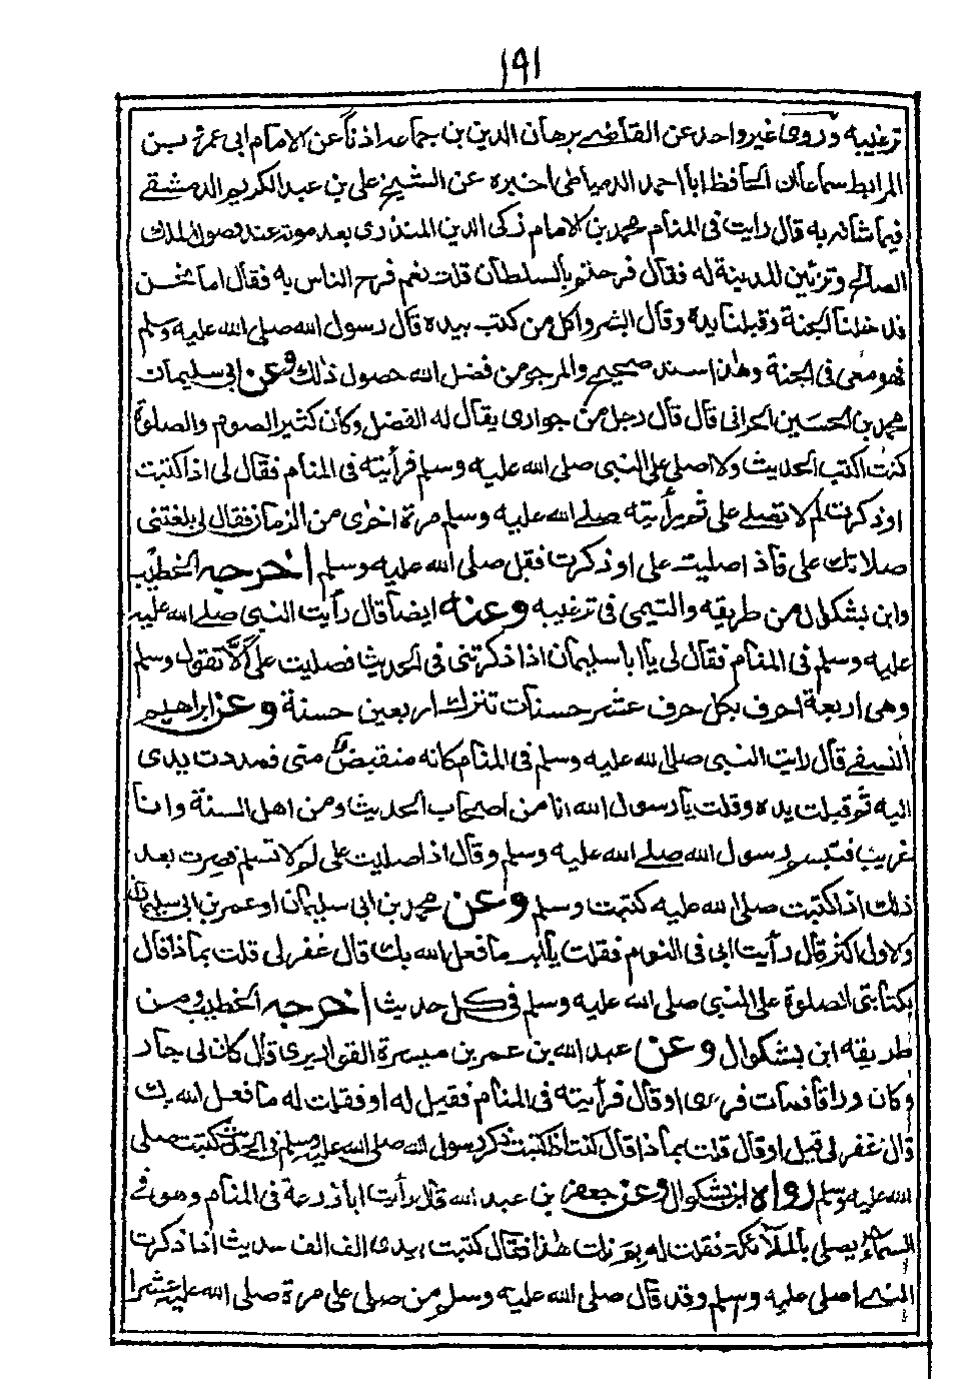 ١٩١
ترغيبه وروى غير واحد عن القاضے برهان الدين بن جماعة اذناً عن الامام ابى عمرو بن
المرابط سماعا ان الحافظ ابا احمد الدمياطى اخبره عن الشيخ على بن عبد الكريم الدمشقے
فيما شافه به قال رايت فى المنام محمد بن الامام زكى الدين المنذرى بعد موته عند وصول الملك
الصالح وتزئين المدينة له فقال فرحتم بالسلطان قلت نعم فرح الناس به فقال اما نحن
فدخلنا الجنة وقبلنا يده وقال ابشروا كل من كتب بيده قال رسول الله صلى الله عليه وسلم
فهو معى فى الجنة وهذا سند صحيح والمرجو من فضل الله حصول ذلك وعن ابى سليمان
محمد بن الحسين الحرانى قال قال رجل من جوارى يقال له الفضل وكان كثير الصوم والصلوة
كنت اكتب الحديث ولا اصلى على النبى صلى الله عليه وسلم فرأيته فى المنام فقال لى اذا كتبت
اوذكرت لم لا تصلے على ثم رأيته صلے الله عليه وسلم مرة اخرى من الزمان فقال لى بلغتنى
صلاتك على فاذا صليت على او ذكرت فقل صلى الله عليه وسلم اخرجه الخطيب
وابن بشكوال من طريقه والتيمى فى ترغيبه وعنه ايضا قال رأيت النبى صلے الله عليه
عليه وسلم فى المنام فقال لى يا ابا سليمان اذا ذكرتنى فى الحديث فصليت على الّا تقول وسلم
وهى اربعة احرف بكل حرف عشر حسنات تترك اربعين حسنة وعن ابراهيم
النسفے قال رايت النبى صلى الله عليه وسلم فى المنام كانه منقبضا منى فمددت يدى
اليه ثم قبلت يده وقلت يا رسول الله انا من اصحاب الحديث ومن اهل السنة وانا
غريب فتبسم رسول الله صلے الله عليه وسلم وقال اذا صليت على لم لا تسلم فصرت بعد
ذلك اذا كتبت صلى الله عليه كتبت وسلم وعن محمد بن ابى سليمان او عمر بن ابى سليمان
ولاول اكثر قال رأيت ابى فى النوم فقلت يا ابت ما فعل الله بك قال غفر لى قلت بماذا قال
بكتابتى الصلوة على النبى صلى الله عليه وسلم فى كل حديث اخرجه الخطيب ومن
طريقه ابن بشكوال وعن عبد الله بن عمر بن ميسرة القواريرى قال كان لى جار
وكان وراقا فمات فرىٔ او قال فرأيته فى المنام فقيل له او فقلت له ما فعل الله بك
قال غفر لى قيل او قال قلت بماذا قال كنت اذا كتبت ذكر رسول الله صلى الله عليه وسلم فى الحديث كتبت صلى
الله عليه وسلم رواه ابن بشكوال وعن جعفر بن عبد الله قال رأيت ابا زرعة فى المنام وهو فى
السماء يصلى بالملائكة فقلت له بم نلت هذا فقال كتبت بيدى الف الف حديث اذا ذكرت
النبے اصلى عليه وسلم وقد قال صلى الله عليه وسلم من صلى على مرة صلى الله عليه عشرا